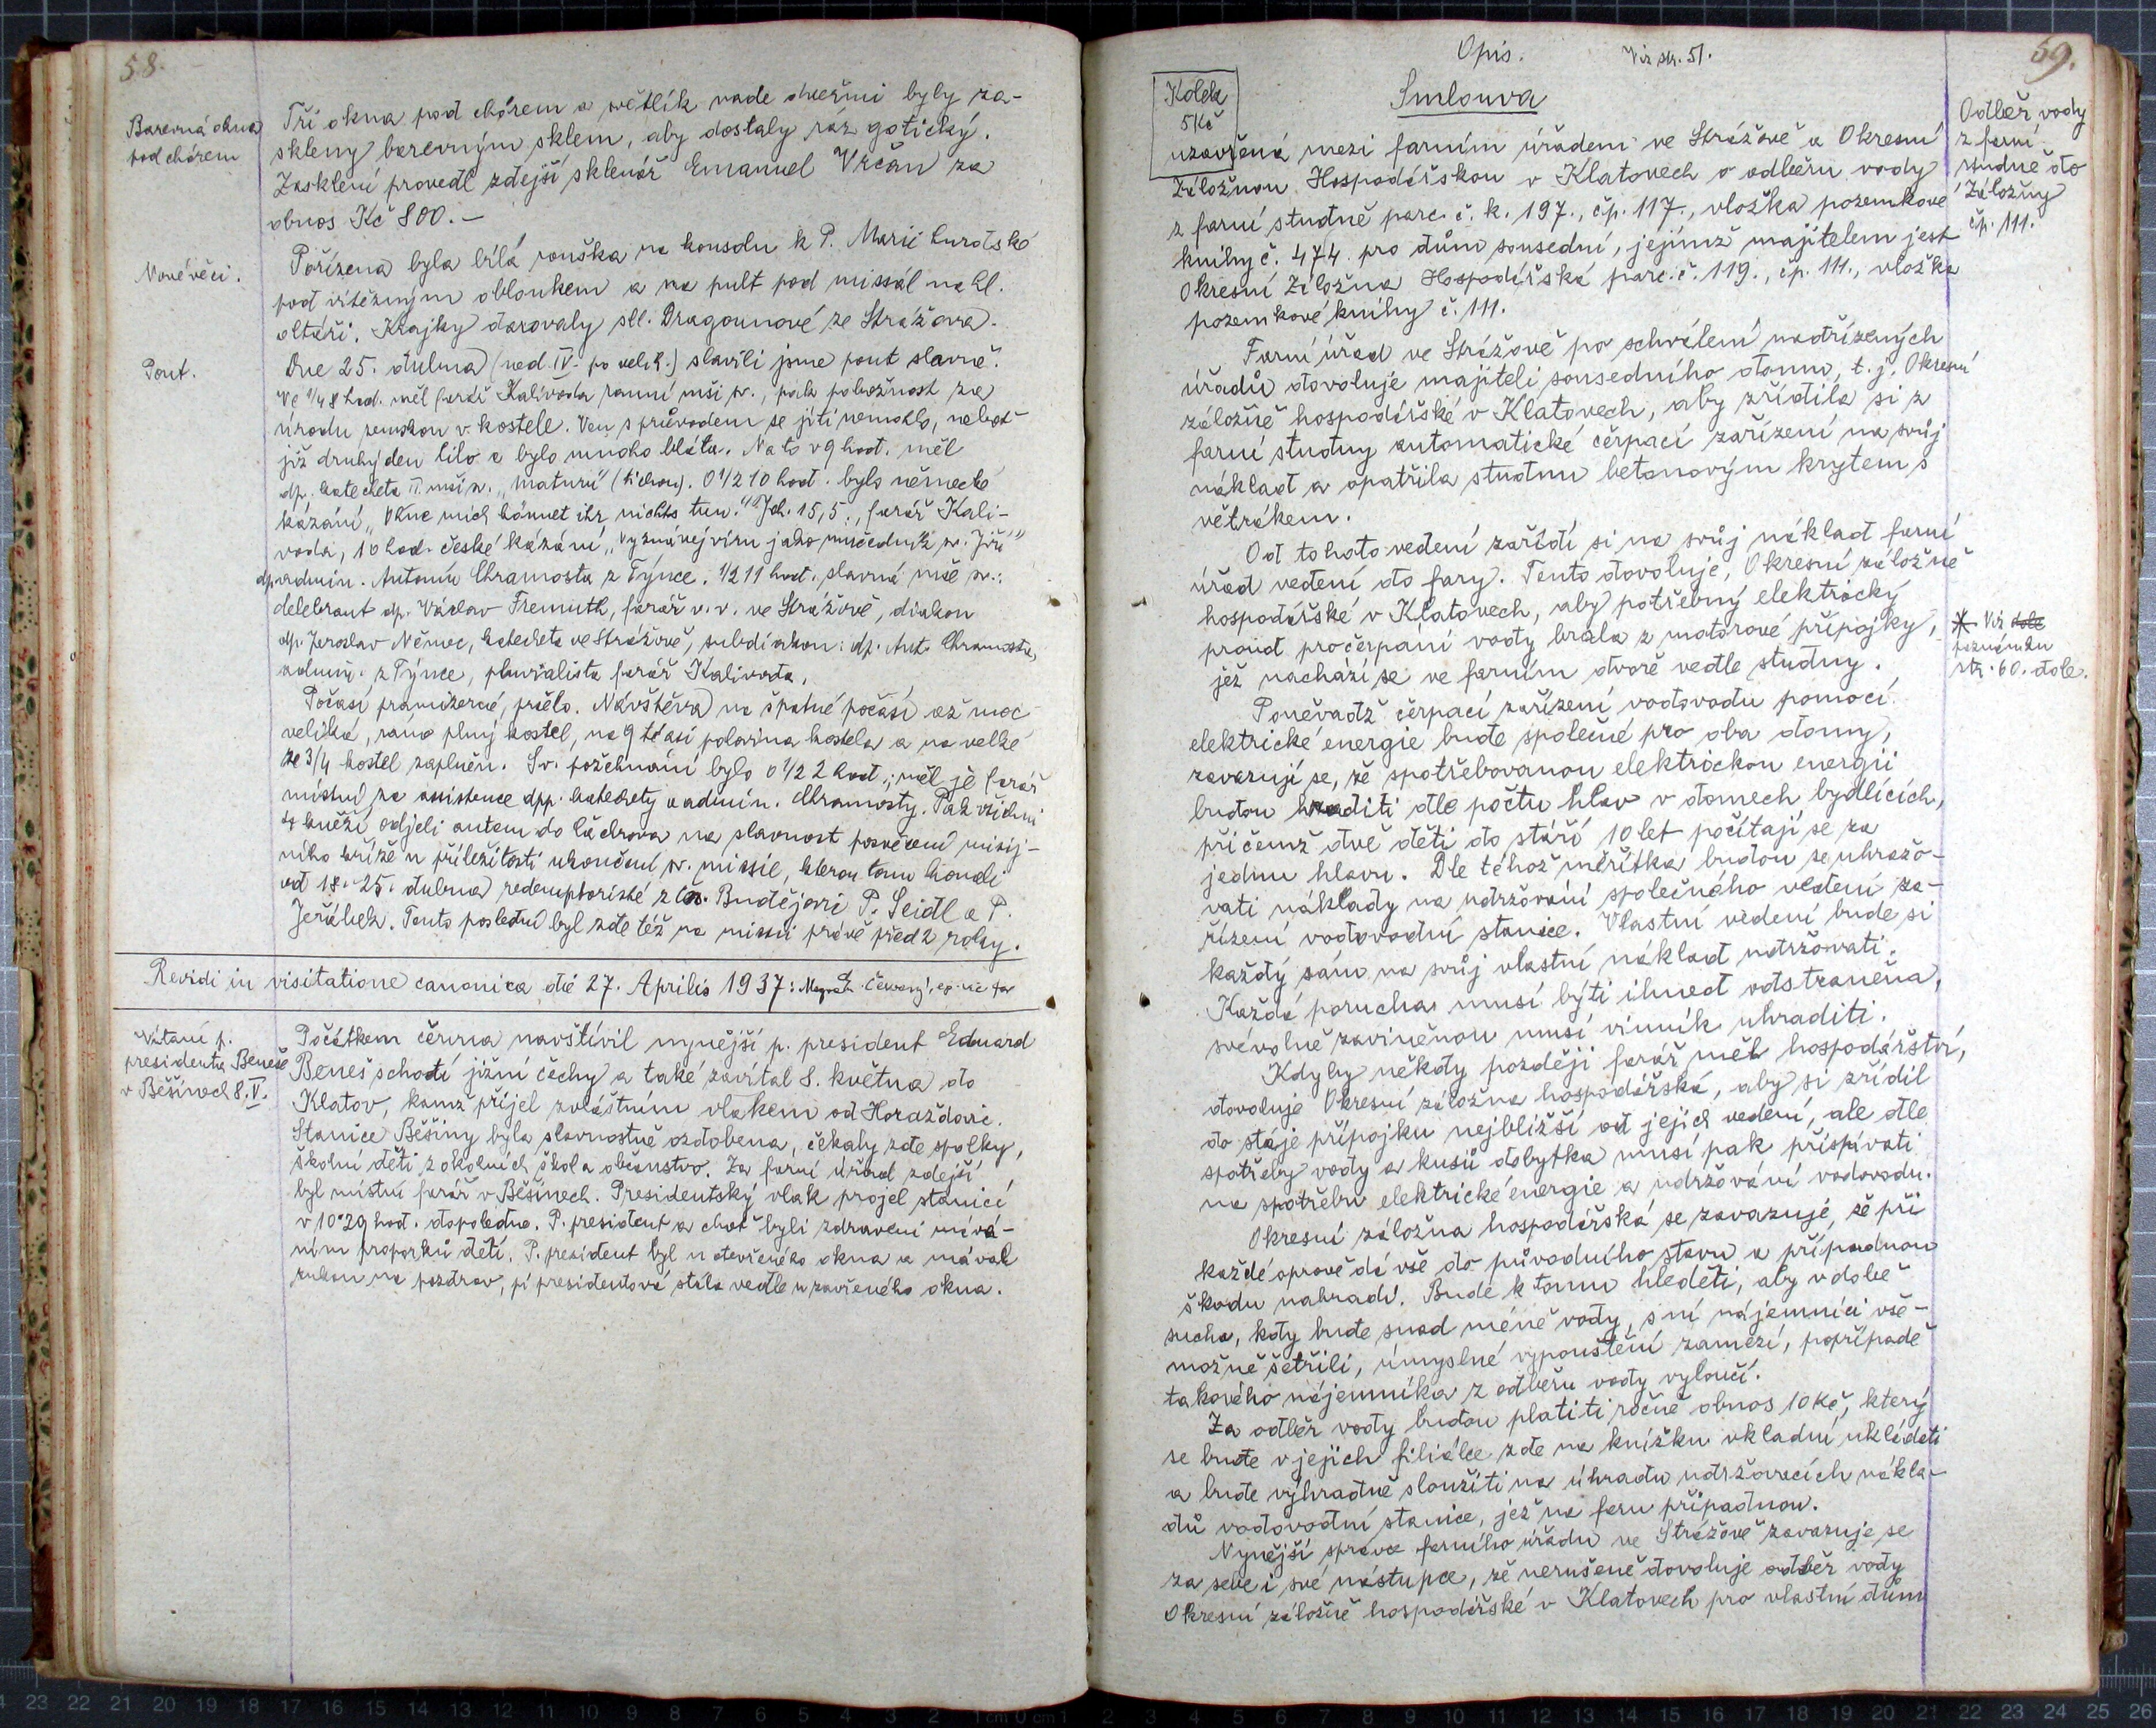 58.
Barevná okna
pod chórem
Tři okna pod chórem a světlík nade dveřmi byly za-
skleny barevným sklem, aby dostaly ráz gotický.
Zasklení provedl zdejší sklenář Emanuel Vrčan za
obnos Kč 800.-
Nové věci.
Pořízena byla bílá rouška na konsolu k P. Marii Lurdské
pod vítězným obloukem a na pult pod missál na hl.
oltáři. Krajky darovaly sll. Dragounové ze Strážova.
Pouť.
Dne 25. dubna (ned. IV. po velik.) slavili jsme pouť slavně.
Ve 1/4 8 hod. měl farář Kalivoda ranní mši sv., pak pobožnost za
úrodu zemskou v kostele. Ven s průvodem se jíti nemohlo, neboť
již druhý den lilo a bylo mnoho bláta. Na to v 9 hod. měl
dp. katecheta II. mši sv. "maturií" (tichou). O 1/2 10 hod. bylo německé
kázání "Ohne mich könnet ihr nichts tun." Joh. 15,5., farář Kali-
voda, 10 hod. české kázání "Vyznávej víru jako mučedník sv. Jiří"
dp. admin. Antonín Chramosta z Týnce. 1/2 11 hod. slavná mše sv.:
celebrant dp. Václav Fremuth, farář v. v. ve Strážově, diakon
dp. Jaroslav Němec, katecheta ve Strážově, subdiakon: dp. Ant. Chramosta,
admin. z Týnce, pluvialista farář Kalivoda.
Počasí pramizerné, pršelo. Návštěva na špatné počasí až moc
veliká, ráno plný kostel, na 9 té asi polovina kostela a na velké
ze 3/4 kostel zaplněn. Sv. požehnání bylo o 1/2 2 hod.; měl je farář
místní za assistence dpp. katechety a admin. Chramosty. Pak všichni
4 kněží odjeli autem do Čachrova na slavnost posvěcení misij-
ního kříže u příležitosti ukončení sv. missie, kterou tam konali
od 18.-25. dubna redemptoristé z Čes. Budějovic P. Seidl a P.
Jeřábek. Tento poslední byl zde též na missii právě před 2 roky.
Revidi in visitatione canonica die 27. Aprilis 1937:
Vítání p.
presidenta Beneše
v Běšinech 8. V.
Počátkem června navštívil nynější p. president Eduard
Beneš schodí jižní Čechy a také zavítal 8. května do
Klatov, kamž přijel zvláštním vlakem od Horažďovic.
Stanice Běšiny byla slavnostně ozdobena, čekaly zde spolky,
školní děti z okolních škol a občanstvo. Za farní úřad zdejší
byl místní farář v Běšinech. Presidentský vlak projel stanicí
v 10.29 hod. dopoledne. P. president a choť byli zdraveni mává-
ním praporků dětí. P. president byl u otevřeného okna a mával
rukou na pozdrav, pí presidentová stála vedle u zavřeného okna.
59.
Opis. Viz str. 51.
Kolek
5 Kč
Smlouva
Odběr vody
z farní
studně do
Záložny
čp. 111.
uzavřená mezi farním úřadem ve Strážově a Okresní
Záložnou Hospodářskou v Klatovech o odběru vody
z farní studně parc. č. k. 197., čp. 117., vložka pozemkové
knihy č. 474. pro dům sousední, jejímž majitelem jest
Okresní Záložna Hospodářská parc. č. 119., čp. 111., vložka
pozemkové knihy č. 111.
Farní úřad ve Strážově po schválení nadřízených
úřadů dovoluje majiteli sousedního domu, t. j. Okresní
záložně hospodářské v Klatovech, aby zřídila si z
farní studny automatické čerpací zařízení na svůj
náklad a opatřila studnu betonovým krytem s
větrákem.
Od tohoto vedení zařídí si na svůj náklad farní
úřad vedení do fary. Tento dovoluje, Okresní záložně
hospodářské v Klatovech, aby potřebný elektrický
proud pročerpání vody brala z motorové přípojky,
jež nachází se ve farním dvoře vedle studny.
* Viz dole
poznámku
str. 60. dole.
Poněvadž čerpací zařízení vodovodu pomocí
elektrické energie bude společné pro oba domy,
zavazují se, že spotřebovanou elektrickou energii
budou hraditi dle počtu hlav v domech bydlících,
při čemž dvě děti do stáří 10 let počítají se za
jednu hlavu. Dle téhož měřítka budou se uhražo-
vati náklady na udržování společného vedení za-
řízení vodovodní stanice. Vlastní vedení bude si
každý sám na svůj vlastní náklad udržovati.
Každá porucha musí býti ihned odstraněna,
svévolně zaviněnou musí vinník uhraditi.
Kdyby někdy později farář měl hospodářství,
dovoluje Okresní záložna hospodářská, aby si zřídil
do stáje přípojku nejbližší od jejich vedení, ale dle
spotřeby vody a kusů dobytka musí pak přispívati
na spotřebu elektrické energie a udržování vodovodu.
Okresní záložna hospodářská se zavazuje, že při
každé opravě dá vše do původního stavu a případnou
škodu nahradí. Bude k tomu hleděti, aby v době
sucha, kdy bude snad méně vody, s ní nájemníci vše-
možně šetřili, úmyslné vypouštění zamezí, popřípadě
takového nájemníka z odběru vody vyloučí.
Za odběr vody budou platiti ročně obnos 10 Kč, který
se bude v jejich filiálce zde na knížku vkladní ukládati
a bude výhradně sloužiti na úhradu udržovacích nákla-
dů vodovodní stanice, jež na faru připadnou.
Nynější správce farního úřadu ve Strážově zavazuje se
za sebe i své nástupce, že nerušeně dovoluje odběr vody
Okresní záložně hospodářské v Klatovech pro vlastní dům